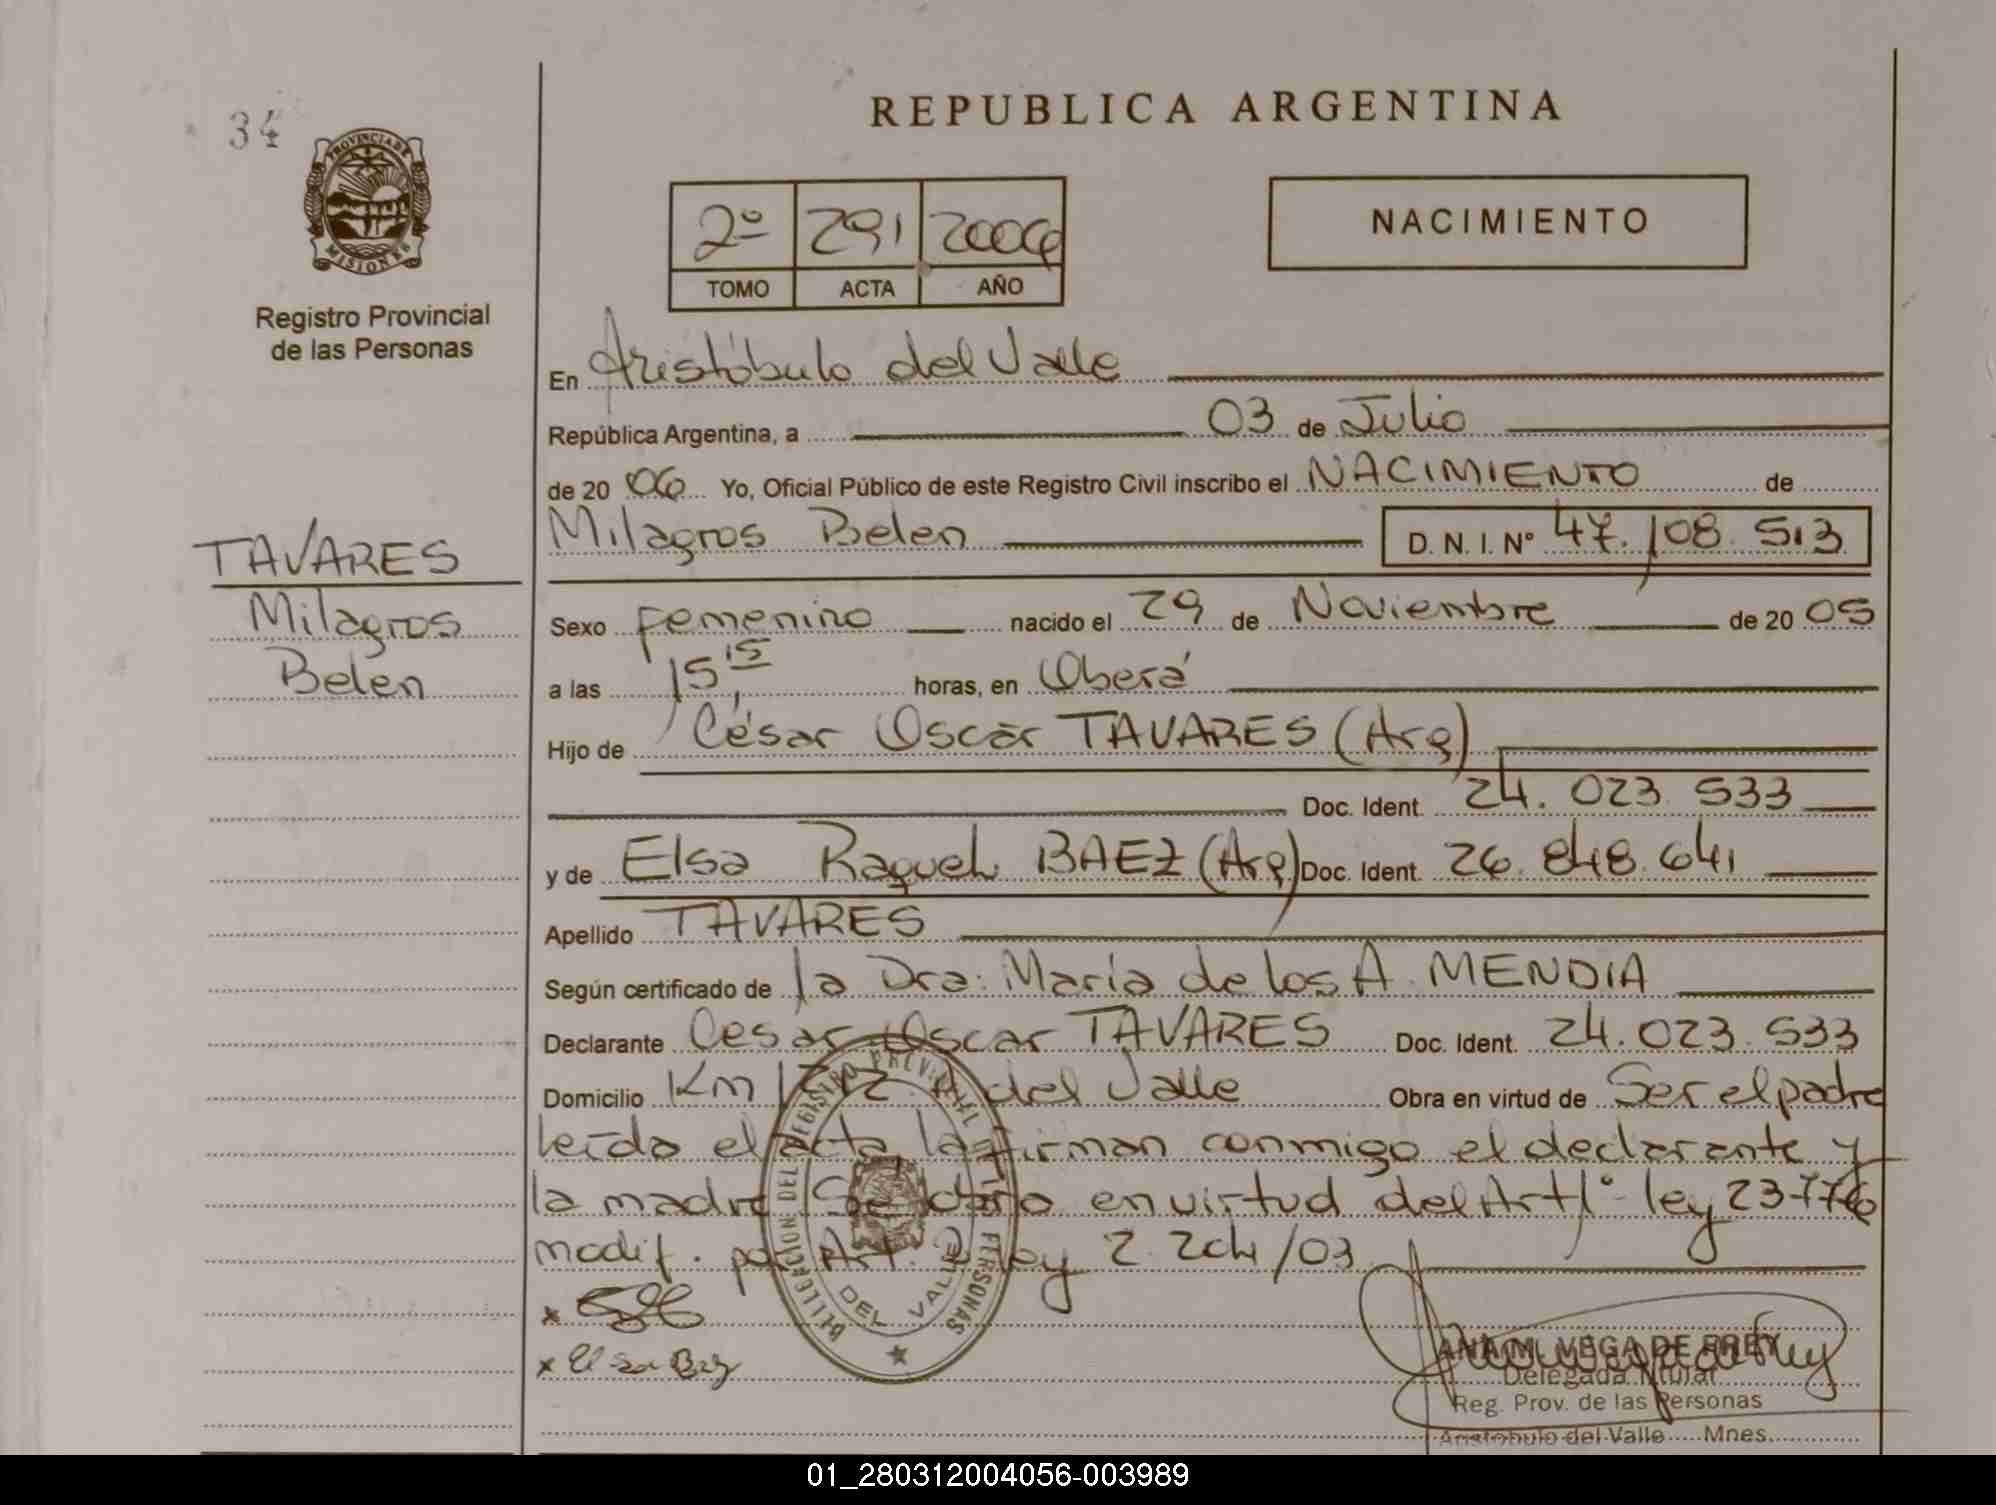 REPUBLICA ARGENTINA
34
PROVINCIA DE
MISIONES
Registro Provincial
de las Personas
2º 291 2006
TOMO ACTA AÑO
NACIMIENTO
En Aristóbulo del Valle
República Argentina, a 03 de Julio
de 20 06 Yo, Oficial Público de este Registro Civil inscribo el NACIMIENTO de
Milagros Belen D. N. I. Nº 47.108.513
TAVARES
Milagros
Belen
Sexo femenino nacido el 29 de Noviembre de 20 05
a las 15,15 horas, en Oberá
Hijo de César Oscar TAVARES (Arg)
Doc. Ident. 24.023.533
y de Elsa Raquel BAEZ (Arg) Doc. Ident. 26.848.641
Apellido TAVARES
Según certificado de la Dra: María de los A. MENDIA
Declarante Cesar Oscar TAVARES Doc. Ident. 24.023.533
Domicilio Km A del Valle Obra en virtud de Ser el padre
leída el acta, la firman conmigo el declarante y
la madre Se labra en virtud del Art 1º ley 23776
modif. por Art. 2 ley 2.204/03
x
x Elsa Baez
DELEGACION DEL REGISTRO PROVINCIAL DE LAS PERSONAS
DEL VALLE
ANA M. VEGA DE FREY
Delegada Titular
Reg. Prov. de las Personas
Aristóbulo del Valle Mnes.
01_280312004056-003989